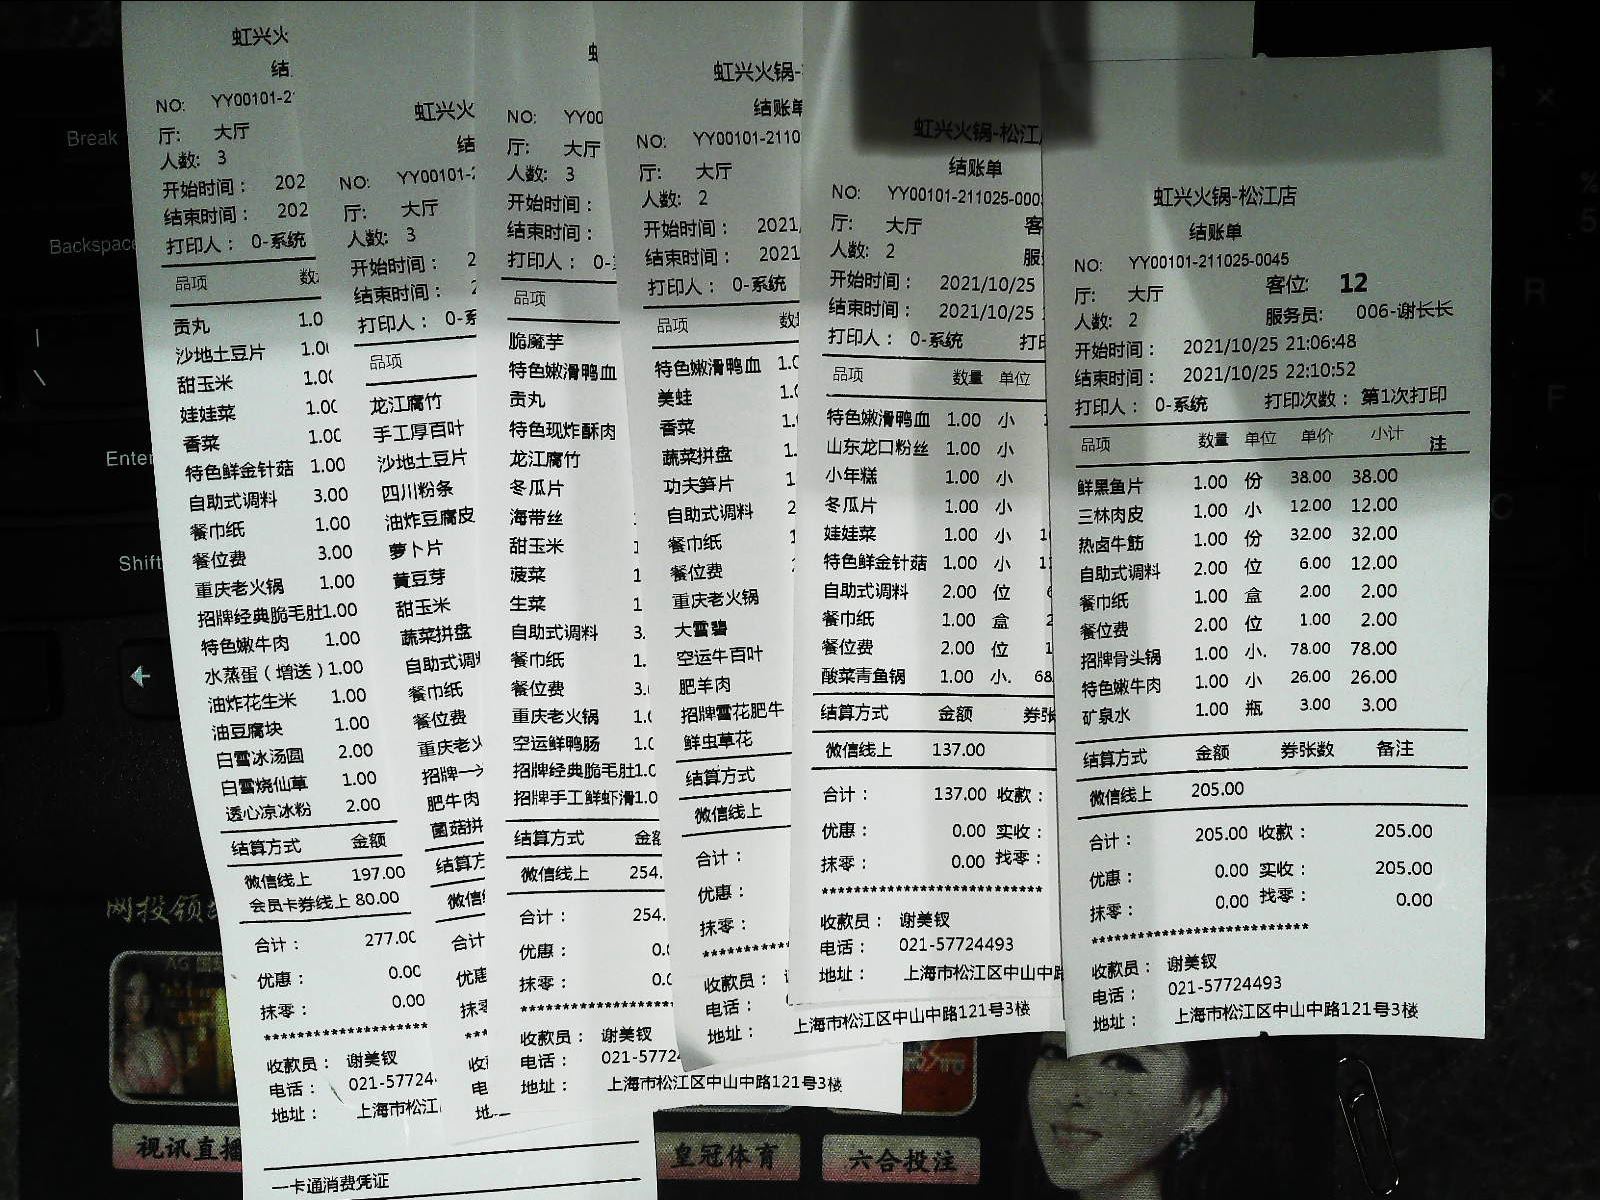 虹兴火
结
NO: YY00101-2
厅: 大厅
人数: 3
开始时间: 202
结束时间: 202
打印人: 0-系统
品项 数
贡丸 1.0
沙地土豆片 1.0
甜玉米 1.00
娃娃菜 1.00
香菜 1.00
特色鲜金针菇 1.00
自助式调料 3.00
餐巾纸 1.00
餐位费 3.00
重庆老火锅 1.00
招牌经典脆毛肚1.00
特色嫩牛肉 1.00
水蒸蛋(增送)1.00
油炸花生米 1.00
油豆腐块 1.00
白雪冰汤圆 2.00
白雪烧仙草 1.00
透心凉冰粉 2.00
结算方式 金额
微信线上 197.00
会员卡券线上 80.00
合计: 277.00
优惠: 0.00
抹零: 0.00
**************************
收款员: 谢美钗
电话: 021-57724
地址: 上海市松江
一卡通消费凭证
虹兴火
结
NO: YY00101-
厅: 大厅
人数: 3
开始时间: 2
结束时间:
打印人: 0-系
品项
龙江腐竹
手工厚百叶
沙地土豆片
四川粉条
油炸豆腐皮
萝卜片
黄豆芽
甜玉米
蔬菜拼盘
自助式调
餐巾纸
餐位费
重庆老火
招牌一
肥牛肉
菌菇拼
结算方
微信
合计
优惠
抹零
**
收
电
地
虹
NO: YY00
厅: 大厅
人数: 3
开始时间:
结束时间:
打印人: 0-
品项
脆魔芋
特色嫩滑鸭血
贡丸
特色现炸酥肉
龙江腐竹
冬瓜片
海带丝
甜玉米
菠菜 1
生菜 1
自助式调料 3.
餐巾纸 1.
餐位费 3.
重庆老火锅 1.0
空运鲜鸭肠 1.0
招牌经典脆毛肚1.0
招牌手工鲜虾滑1.0
结算方式 金额
微信线上 254.
合计: 254.
优惠: 0.0
抹零: 0.0
************************
收款员: 谢美钗
电话: 021-5772
地址: 上海市松江区中山中路121号3楼
虹兴火锅-
结账单
NO: YY00101-2110
厅: 大厅
人数: 2
开始时间: 2021/
结束时间: 2021
打印人: 0-系统
品项 数
特色嫩滑鸭血 1.0
美蛙 1.0
香菜 1.
蔬菜拼盘 1.
功夫笋片 1
自助式调料 2
餐巾纸 1
餐位费 2
重庆老火锅
大雪碧
空运牛百叶
肥羊肉
招牌雪花肥牛
鲜虫草花
结算方式
微信线上
合计:
优惠:
抹零:
*************
收款员:
电话: 0
地址: 上海市松江区中山中路121号3楼
虹兴火锅-松江
结账单
NO: YY00101-211025-000
厅: 大厅 客
人数: 2 服
开始时间: 2021/10/25
结束时间: 2021/10/25
打印人: 0-系统 打印
品项 数量 单位
特色嫩滑鸭血 1.00 小
山东龙口粉丝 1.00 小
小年糕 1.00 小
冬瓜片 1.00 小
娃娃菜 1.00 小 1
特色鲜金针菇 1.00 小 1
自助式调料 2.00 位 6
餐巾纸 1.00 盒 2
餐位费 2.00 位 1
酸菜青鱼锅 1.00 小. 68
结算方式 金额 券张
微信线上 137.00
合计: 137.00 收款:
优惠: 0.00 实收:
抹零: 0.00 找零:
*********************************
收款员: 谢美钗
电话: 021-57724493
地址: 上海市松江区中山中路
虹兴火锅-松江店
结账单
NO: YY00101-211025-0045
厅: 大厅 客位: 12
人数: 2 服务员: 006-谢长长
开始时间: 2021/10/25 21:06:48
结束时间: 2021/10/25 22:10:52
打印人: 0-系统 打印次数: 第1次打印
品项 数量 单位 单价 小计 注
鲜黑鱼片 1.00 份 38.00 38.00
三林肉皮 1.00 小 12.00 12.00
热卤牛筋 1.00 份 32.00 32.00
自助式调料 2.00 位 6.00 12.00
餐巾纸 1.00 盒 2.00 2.00
餐位费 2.00 位 1.00 2.00
招牌骨头锅 1.00 小. 78.00 78.00
特色嫩牛肉 1.00 小 26.00 26.00
矿泉水 1.00 瓶 3.00 3.00
结算方式 金额 券张数 备注
微信线上 205.00
合计: 205.00 收款: 205.00
优惠: 0.00 实收: 205.00
抹零: 0.00 找零: 0.00
*********************************
收款员: 谢美钗
电话: 021-57724493
地址: 上海市松江区中山中路121号3楼
Break
Backspace
Enter
Shift
网投领
视讯直播
皇冠体育
六合投注